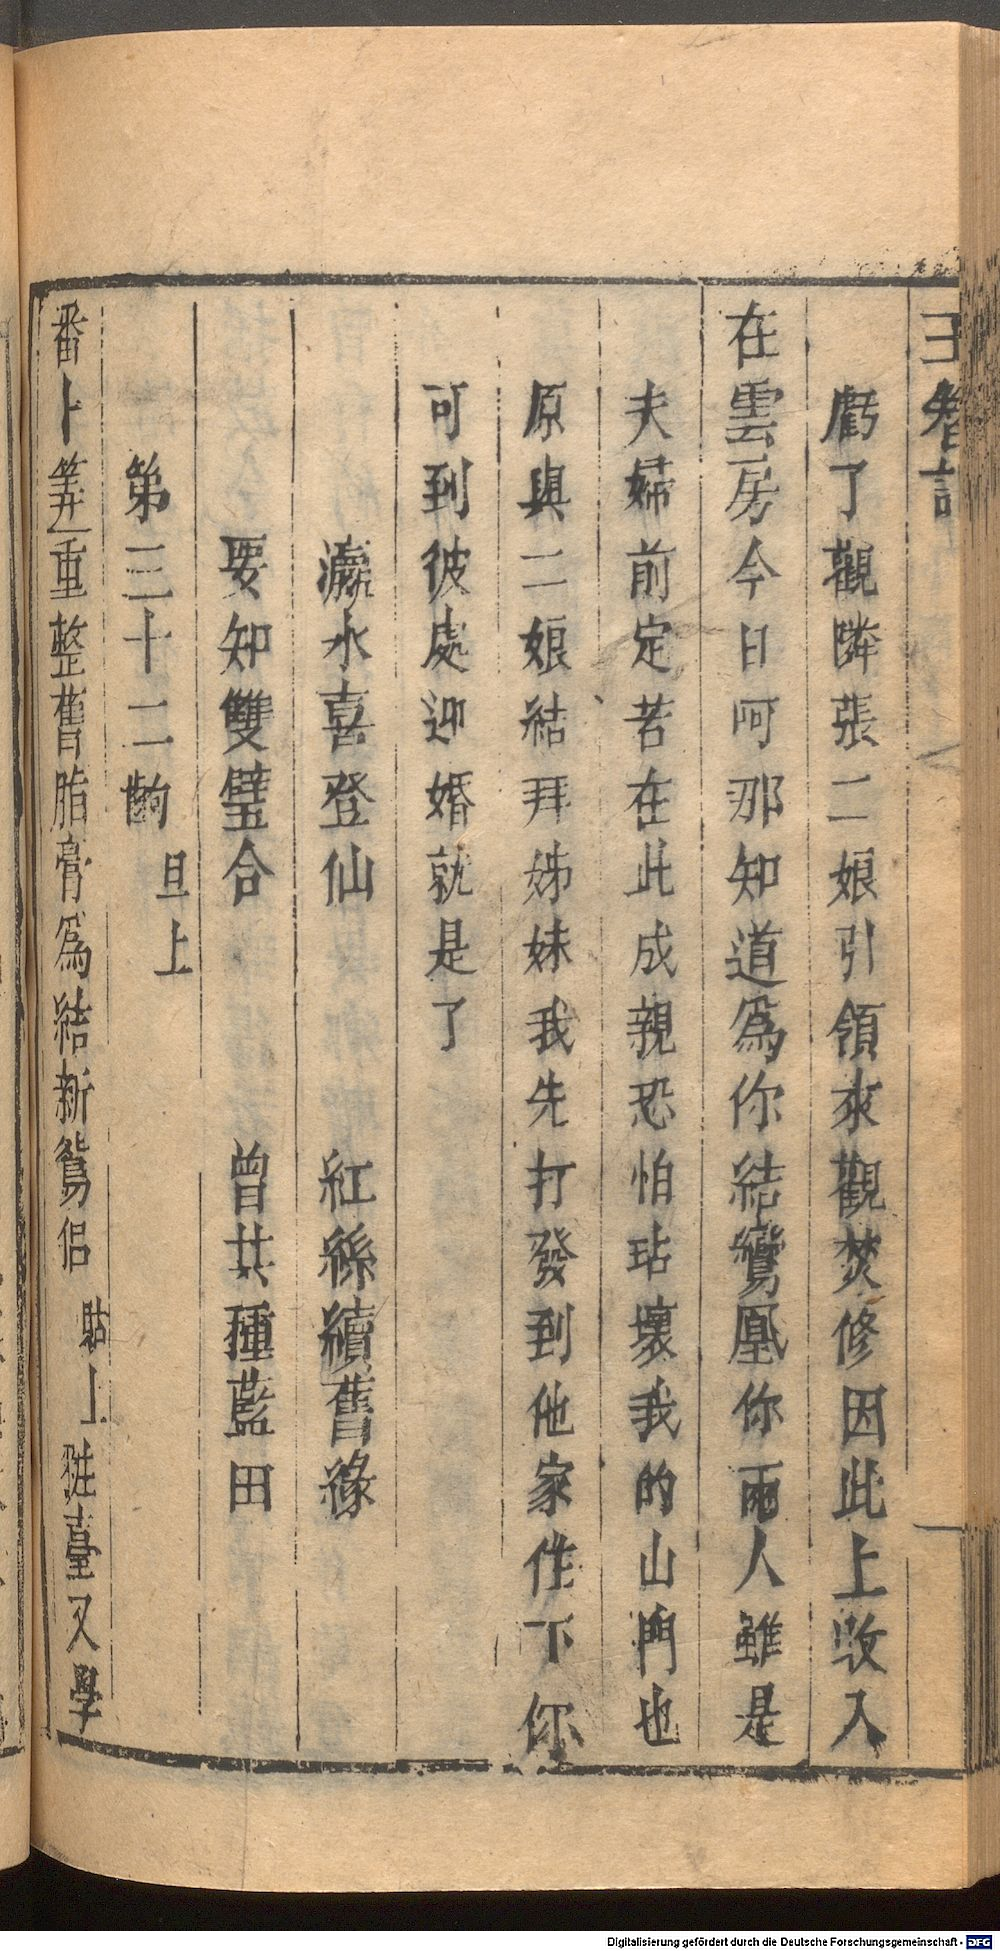 玉簪記
虧了觀隣張二娘引領來觀焚修因此上收入
在雲房今日呵那知道爲你結鸞凰你兩人雖是
夫婦前定若在此成親恐怕玷壞我的山門也
原與二娘結拜姊妹我先打發到他家住下你
可到彼處迎婚就是了
瀛水喜登仙　紅絲續舊緣
要知雙璧合　曾共種藍田
第三十二齣　旦上
番卜筭　重整舊脂膏爲結新鴛侶　貼上　粧臺又學
Digitalisierung gefördert durch die Deutsche Forschungsgemeinschaft - DFG